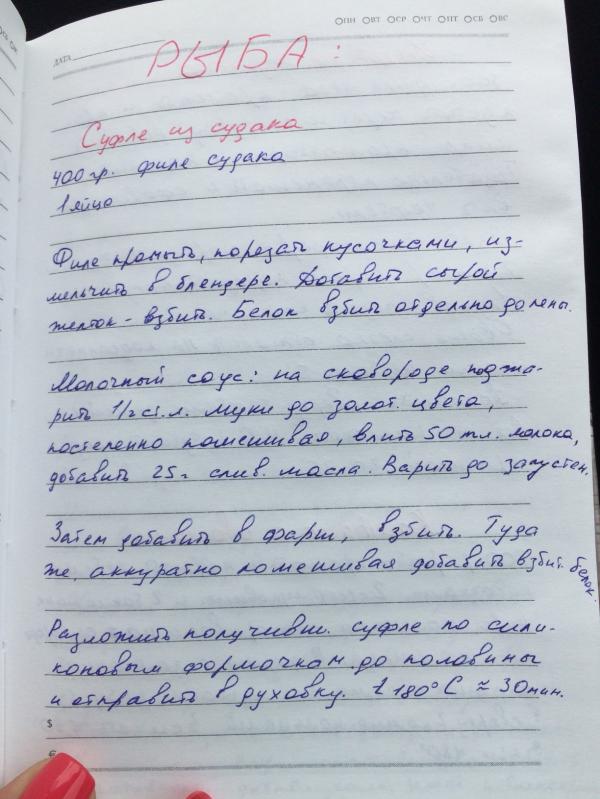 ПН ВТ СР ЧТ ПТ СБ ВС
ДАТА
РЫБА:
Суфле из судака
400 гр. филе судака
1 яйцо
Филе промыть, порезать кусочками, из-
мельчить в блендере. Добавить сырой
желток - взбить. Белок взбить отдельно до пены.
Молочный соус: на сковороде поджа-
рить 1/2 ст.л. муки до золот. цвета,
постепенно помешивая, влить 50 мл. молока,
добавить 25 г слив. масла. Варить до загустен.
Затем добавить в фарш, взбить. Туда
же, аккуратно помешивая добавить взбит. белок.
Разложить получивш. суфле по сили-
коновым формочкам до половины
и отправить в духовку. t 180°C ≈ 30 мин.
$
€